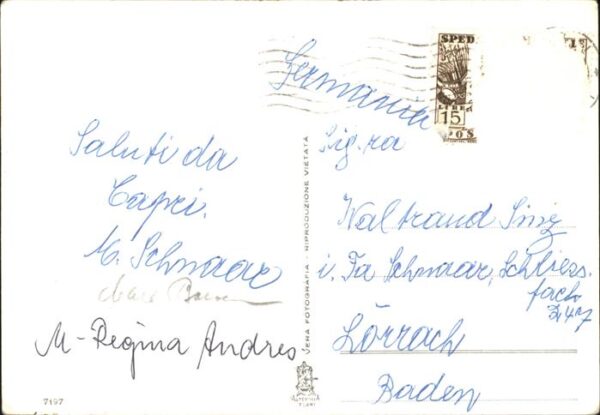 Saluti da
Capri.
M. Schnaar
M-Regina Andres
7197
VERA FOTOGRAFIA - RIPRODUZIONE VIETATA
Germania
SPED
LIRE
15
Sig.ra
Waltraud Sinz
i. Fa Schnaar, Schliess-
fach
Lörrach
Baden